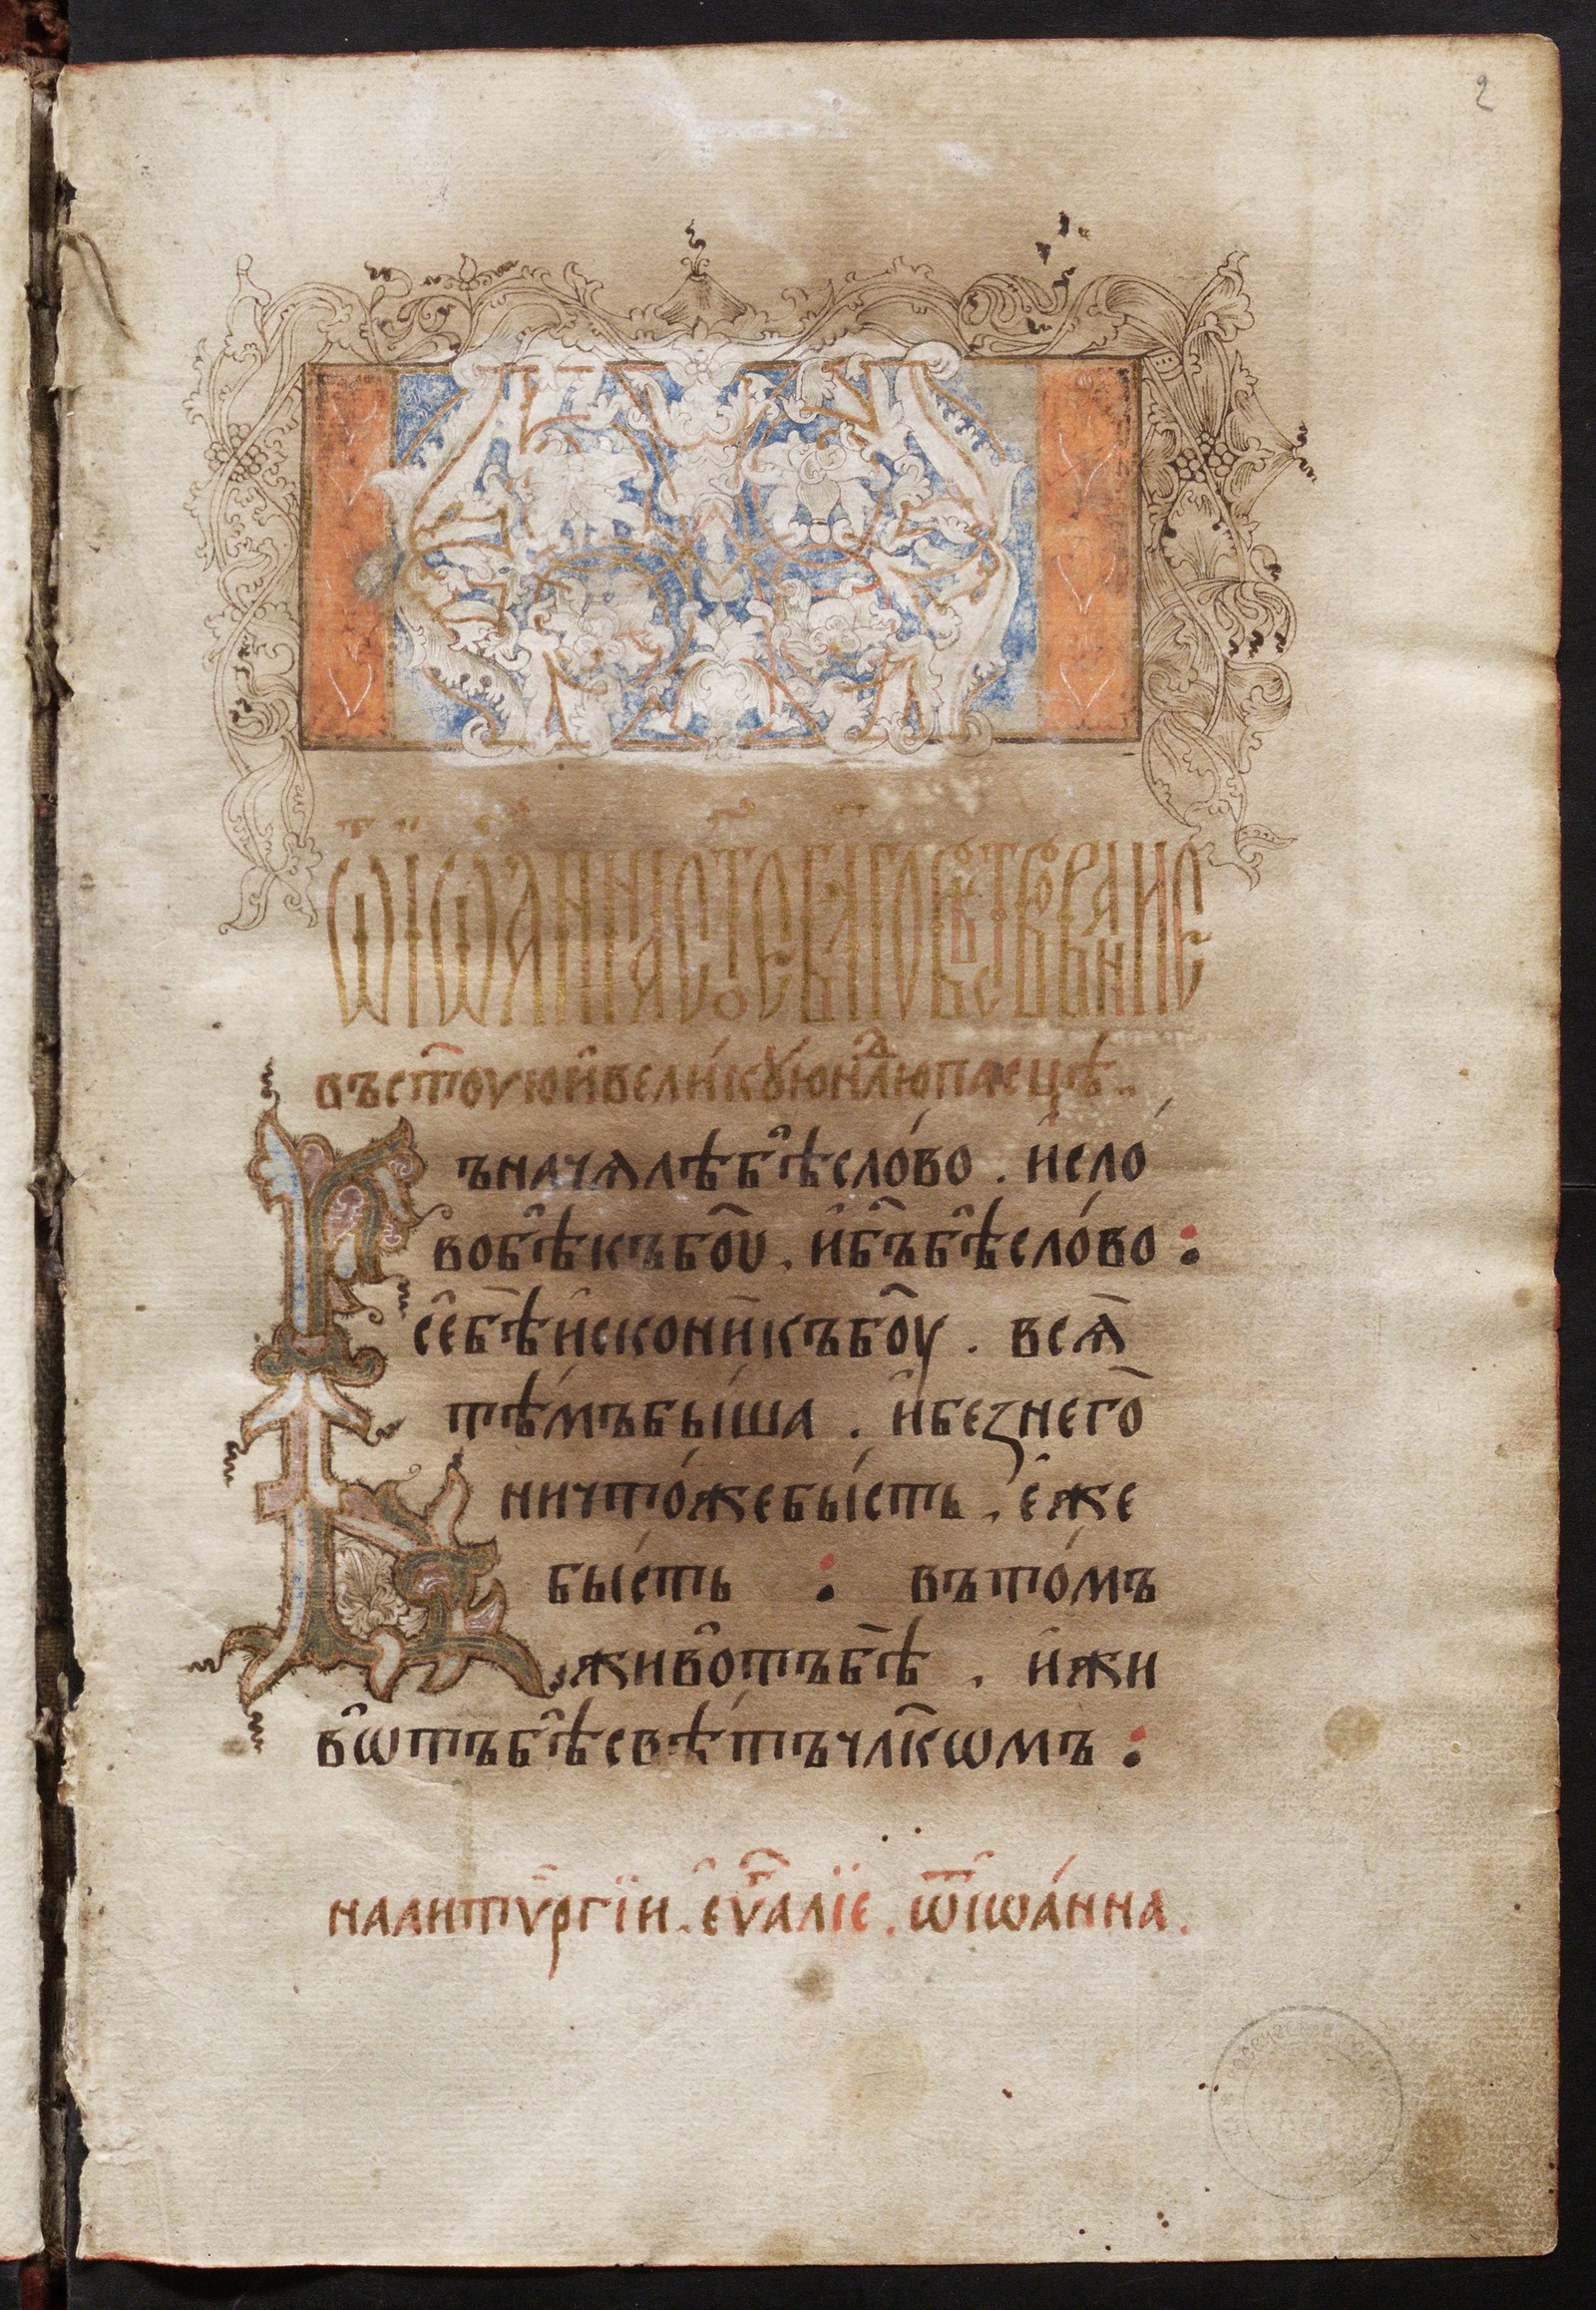 2
ѿ іѡанна ст҃о бл҃говѣствованіе
въ ст҃ую и҆ вели́кꙋю нⷣлю пасцѣ.
Въ нача́лѣ бѣ̑ сло́во . и҆ сло́
во бѣ̑ къ бо҃у . и҆ бг҃ъ бѣ̑ сло́во :
се̑ бѣ̑ и҆скони̑ къ бо҃у . всѧ̑
тѣ́мъ бы́ша . и҆ без него̀
ничто́же бы́сть . е҆же
бы́сть : въ то́мъ
живо̑тъ бѣ̀ . и҆ жи
во̑тъ бѣ̑ свѣ́тъ чл҃кѡмъ :
на литꙋргїи . е҆ѵⷢ҇алїе . ѿ іѡа́нна .